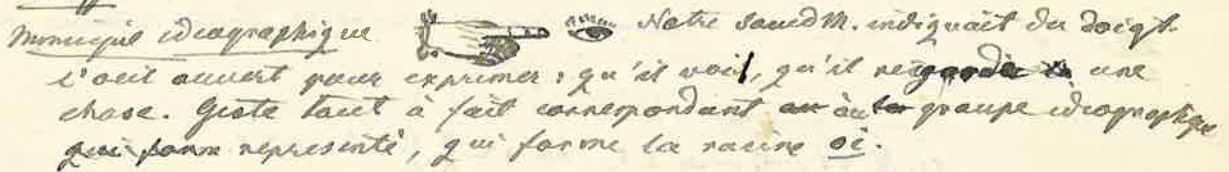 Municipe idéographique Notre sourd M. indiquait du doigt
l'oeil ouvert pour exprimer : qu'il voit, qu'il regarde une
chose. Geste tout à fait correspondant au groupe idéographique
représenté, qui forme la racine oi.